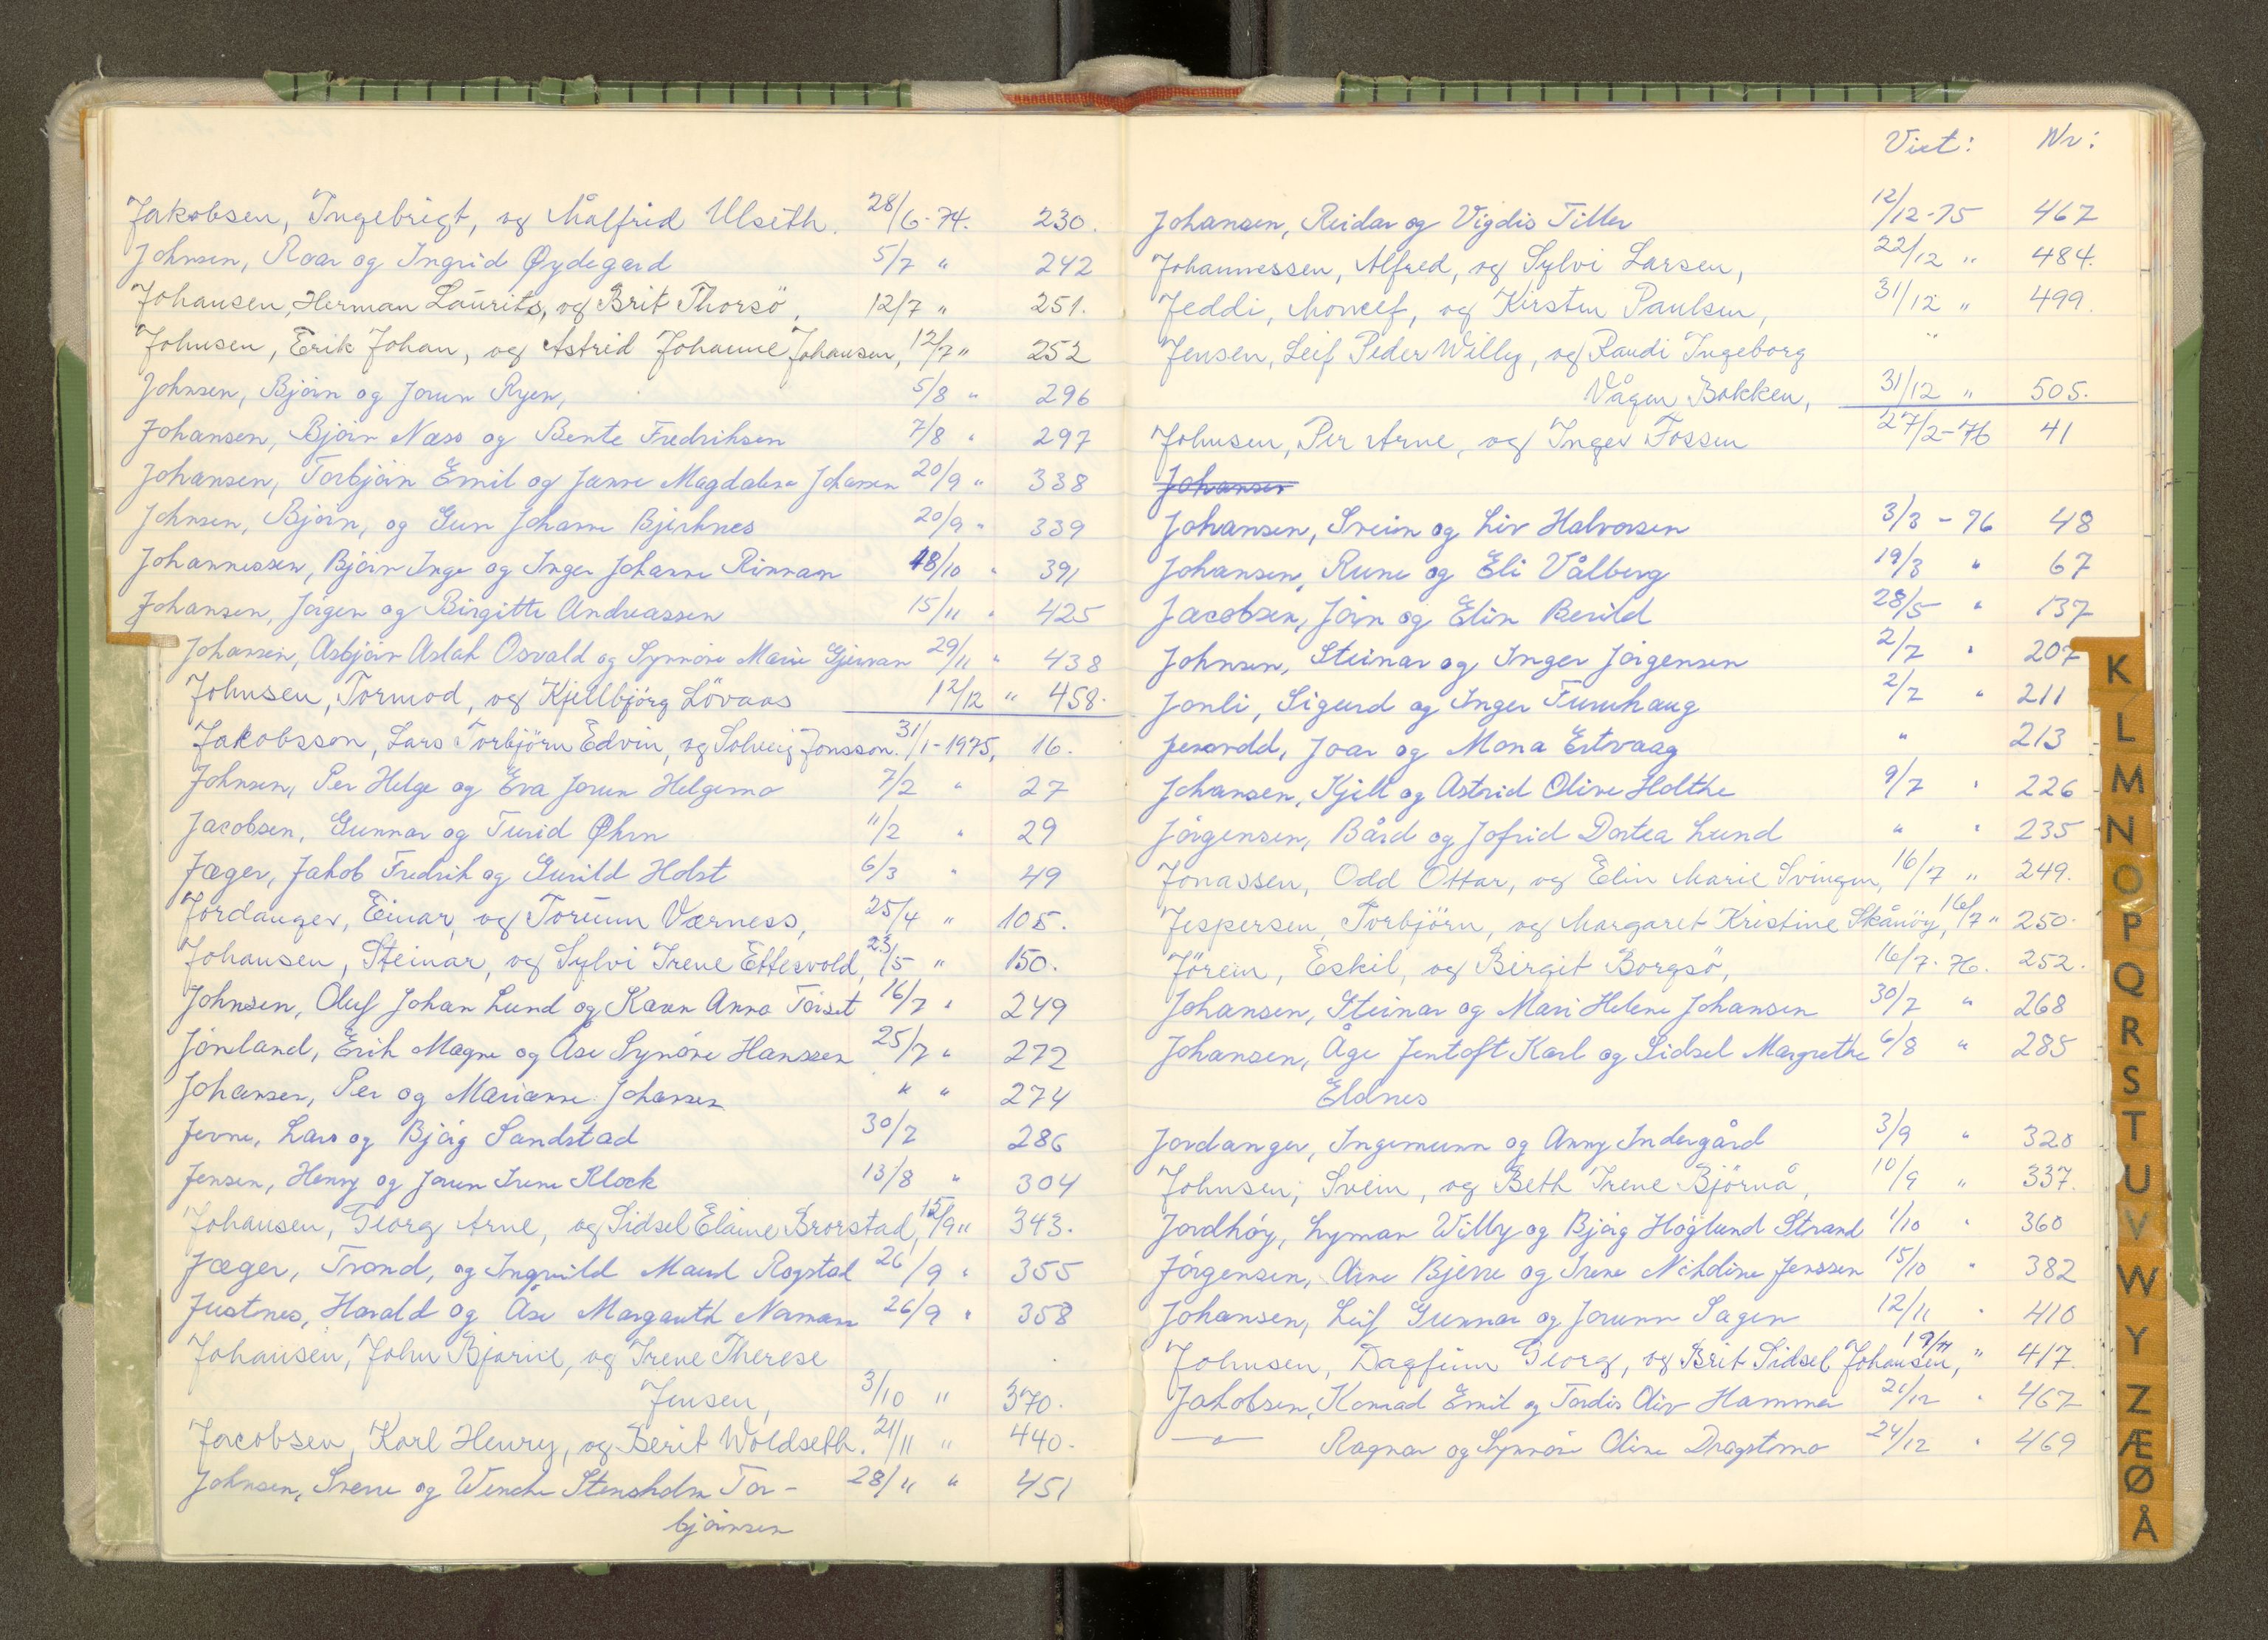 Jakobsen, Ingebrigt, og Målfrid Ulseth. 28/6-74. 230.
Johnsen, Roar og Ingrid Øydegard 5/7 " 242
Johansen, Herman Laurits, og Brit Thorsö, 12/7 " 251.
Johnsen, Erik Johan, og Astrid Johanne Johansen, 12/7 " 252
Johnsen, Bjørn og Jorun Ryen, 5/8 " 296
Johansen, Bjørn Næss og Bente Fredriksen 7/8 " 297
Johansen, Torbjørn Emil og Janne Magdalena Johansen 20/9 " 338
Johnsen, Bjørn, og Gun Johanne Bjerknes 20/9 " 339
Johannessen, Bjørn Inge og Inger Johanne Rinnan 18/10 " 391
Johansen, Jørgen og Birgitte Andreassen 15/11 " 425
Johansen, Asbjørn Aslak Osvald og Synnøve Marie Gjervan 29/11 " 438
Johnsen, Tormod, og Kjellbjörg Lövaas 12/12 " 458.
Jakobsson, Lars Torbjörn Edvin, og Solveig Jonsson. 31/1-1975, 16.
Johnsen, Per Helge og Eva Jorun Helgemo 7/2 " 27
Jacobsen, Gunnar og Turid Øhrn 11/2 " 29
Jæger, Jakob Fredrik og Gurild Holst 6/3 " 49
Jordanger, Einar, og Torunn Værness, 25/4 " 105.
Johansen, Steinar, og Sylvi Irene Ettesvold, 23/5 " 150.
Johnsen, Oluf Johan Lund og Karen Anna Tørset 16/7 " 249
Jøneland, Erik Magne og Åse Synøve Hanssen 25/7 " 272
Johansen, Per og Marianne Johansen " " 274
Jevne, Lars og Bjørg Sandstad 30/7 286
Jensen, Henry og Jorun Irene Klock 13/8 " 304
Johansen, Georg Arne, og Sidsel Elaine Brorstad, 12/9 " 343.
Jæger, Trond, og Ingvild Maud Rogstad 26/9 " 355
Justnes, Harald og Åse Margareth Norman 26/9 " 358
Johansen, John Bjarne, og Irene Therese
Jensen, 3/10 " 370.
Jacobsen, Karl Henry, og Berit Woldseth. 21/11 " 440.
Johnsen, Sverre og Wenche Stensholm Tor- 28/11 " 451
bjørnsen
Viet: Nr:
Johansen, Reidar og Vigdis Tiller 12/12-75 467
Johannessen, Alfred, og Sylvi Larsen, 22/12 " 484.
Jeddi, Moncef, og Kirsten Paulsen, 31/12 " 499.
Jensen, Leif Peder Willy, og Randi Ingeborg "
Vågen Bokken, 31/12 " 505.
Johnsen, Per Arne, og Inger Fossen 27/2-76 41
Johansen
Johansen, Svein og Liv Halvorsen 3/3-76 48
Johansen, Rune og Eli Vålberg 19/3 " 67
Jacobsen, Jörn og Elin Berild 28/5 " 137
Johnsen, Steinar og Inger Jørgensen 2/7 " 207
Jonli, Sigurd og Inger Furuhaug 2/7 " 211
Joar og Mona Ertvaag " 213
Johansen, Kjell og Astrid Oline Holthe 9/7 " 226
Jørgensen, Bård og Jofrid Dortea Lund " " 235
Jonassen, Odd Ottar, og Elin Marie Svingen, 16/7 " 249.
Jespersen, Torbjörn, og Margaret Kristine Skånöy, 16/7 " 250.
Jörein, Eskil, og Birgit Borgsö, 16/7-76. 252.
Johansen, Steinar og Mari Helene Johansen 30/7 " 268
Johansen, Åge Jentoft Karl og Sidsel Margrethe 6/8 " 285
Eldnes
Jordanger, Ingemunn og Anny Indergård 3/9 " 320
Johnsen, Svein, og Beth Irene Björnå, 10/9 " 337.
Jordhøy, Lyman Willy og Bjørg Høglund Strand 1/10 " 360
Jørgensen, Arne Bjerre og Irene Nikoline Jenssen 15/10 " 382
Johansen, Leif Gunnar og Jorunn Sagen 12/11 " 410
Johnsen, Dagfinn Georg, og Brit Sidsel Johansen, 19/11 " 417.
Jakobsen, Konrad Emil og Tordis Oliv Hammer 21/12 " 467
—"— Ragnar og Synnøve Oline Dragstmo 24/12 " 469
K
L
M
N
O
P
Q
R
S
T
U
V
W
Y
Z
Æ
Ø
Å